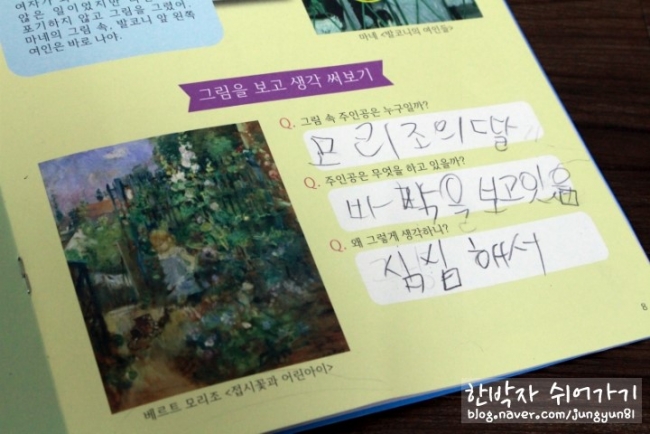 않은 일이었지만
포기하지 않고 그림을 그렸어.
마네의 그림 속, 발코니 앞 왼쪽
여인은 바로 나야.
마네 <발코니의 여인들>
그림을 보고 생각 써보기
Q. 그림 속 주인공은 누구일까?
모리조의 딸
Q. 주인공은 무엇을 하고 있을까?
바깍을 보고있음
Q. 왜 그렇게 생각하니?
심심해서
베르트 모리조 <접시꽃과 어린아이>
8
한박자 쉬어가기
blog.naver.com/jungyun81